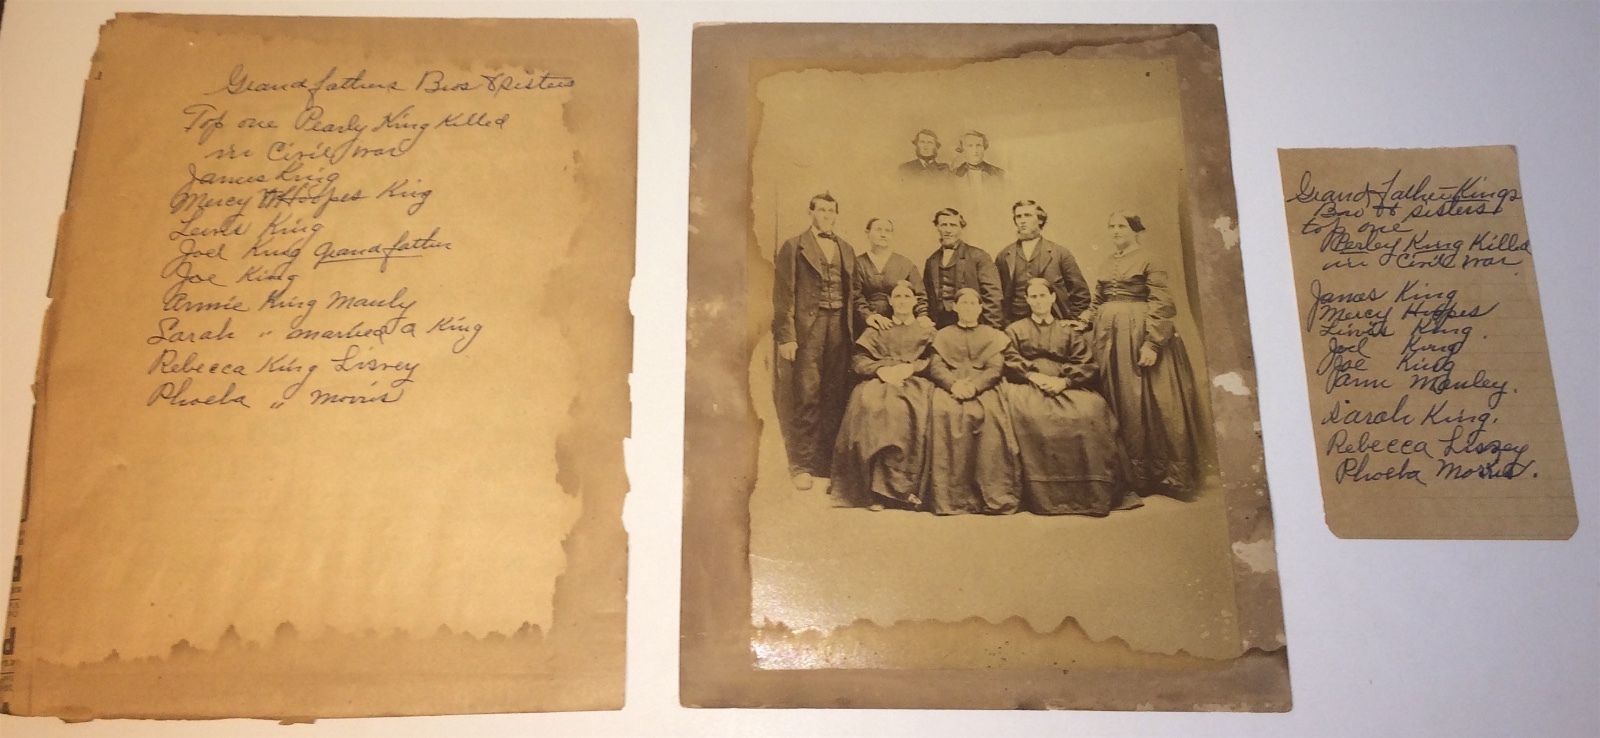 Grandfathers Bros & sisters
Top one Pearly King Killed
in Civil war
James King
Mercy Hoopes King
Lewis King
Joel King grandfather
Joe King
Annie King Manly
Sarah " married a King
Rebecca King Lisney
Phoeba " Morris
Grand father Kings
Bro & sisters
top one
Perley King Killed
in Civil war
James King
Mercy Hoopes
Lewis King.
Joel King
Joe King
Ann Manley.
Sarah King.
Rebecca Lisney
Phoeba Morris.